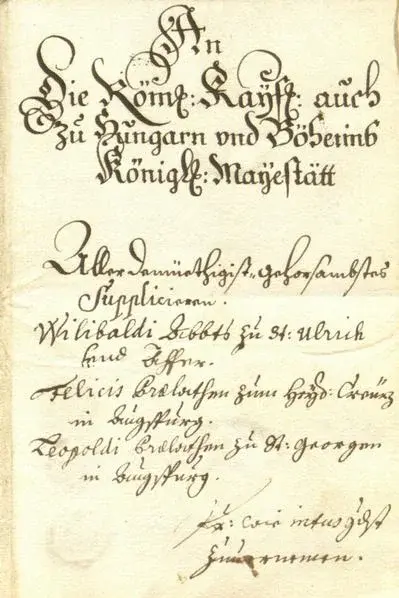 An
Die Röm: Kaÿß: auch
zu Hungarn vnd Böheimb
Königl: Mayestätt
Aller demüethigist-gehorsambstes
Supplicieren.
Wilibaldi Abbts zu St: Ulrich
vnd Affer.
Felicis Prælathen zum Heyl: Creütz
in Augspurg.
Leopoldi Prælathen zu St: Georgen
in Augspurg.
wie intus
zuuernemen.